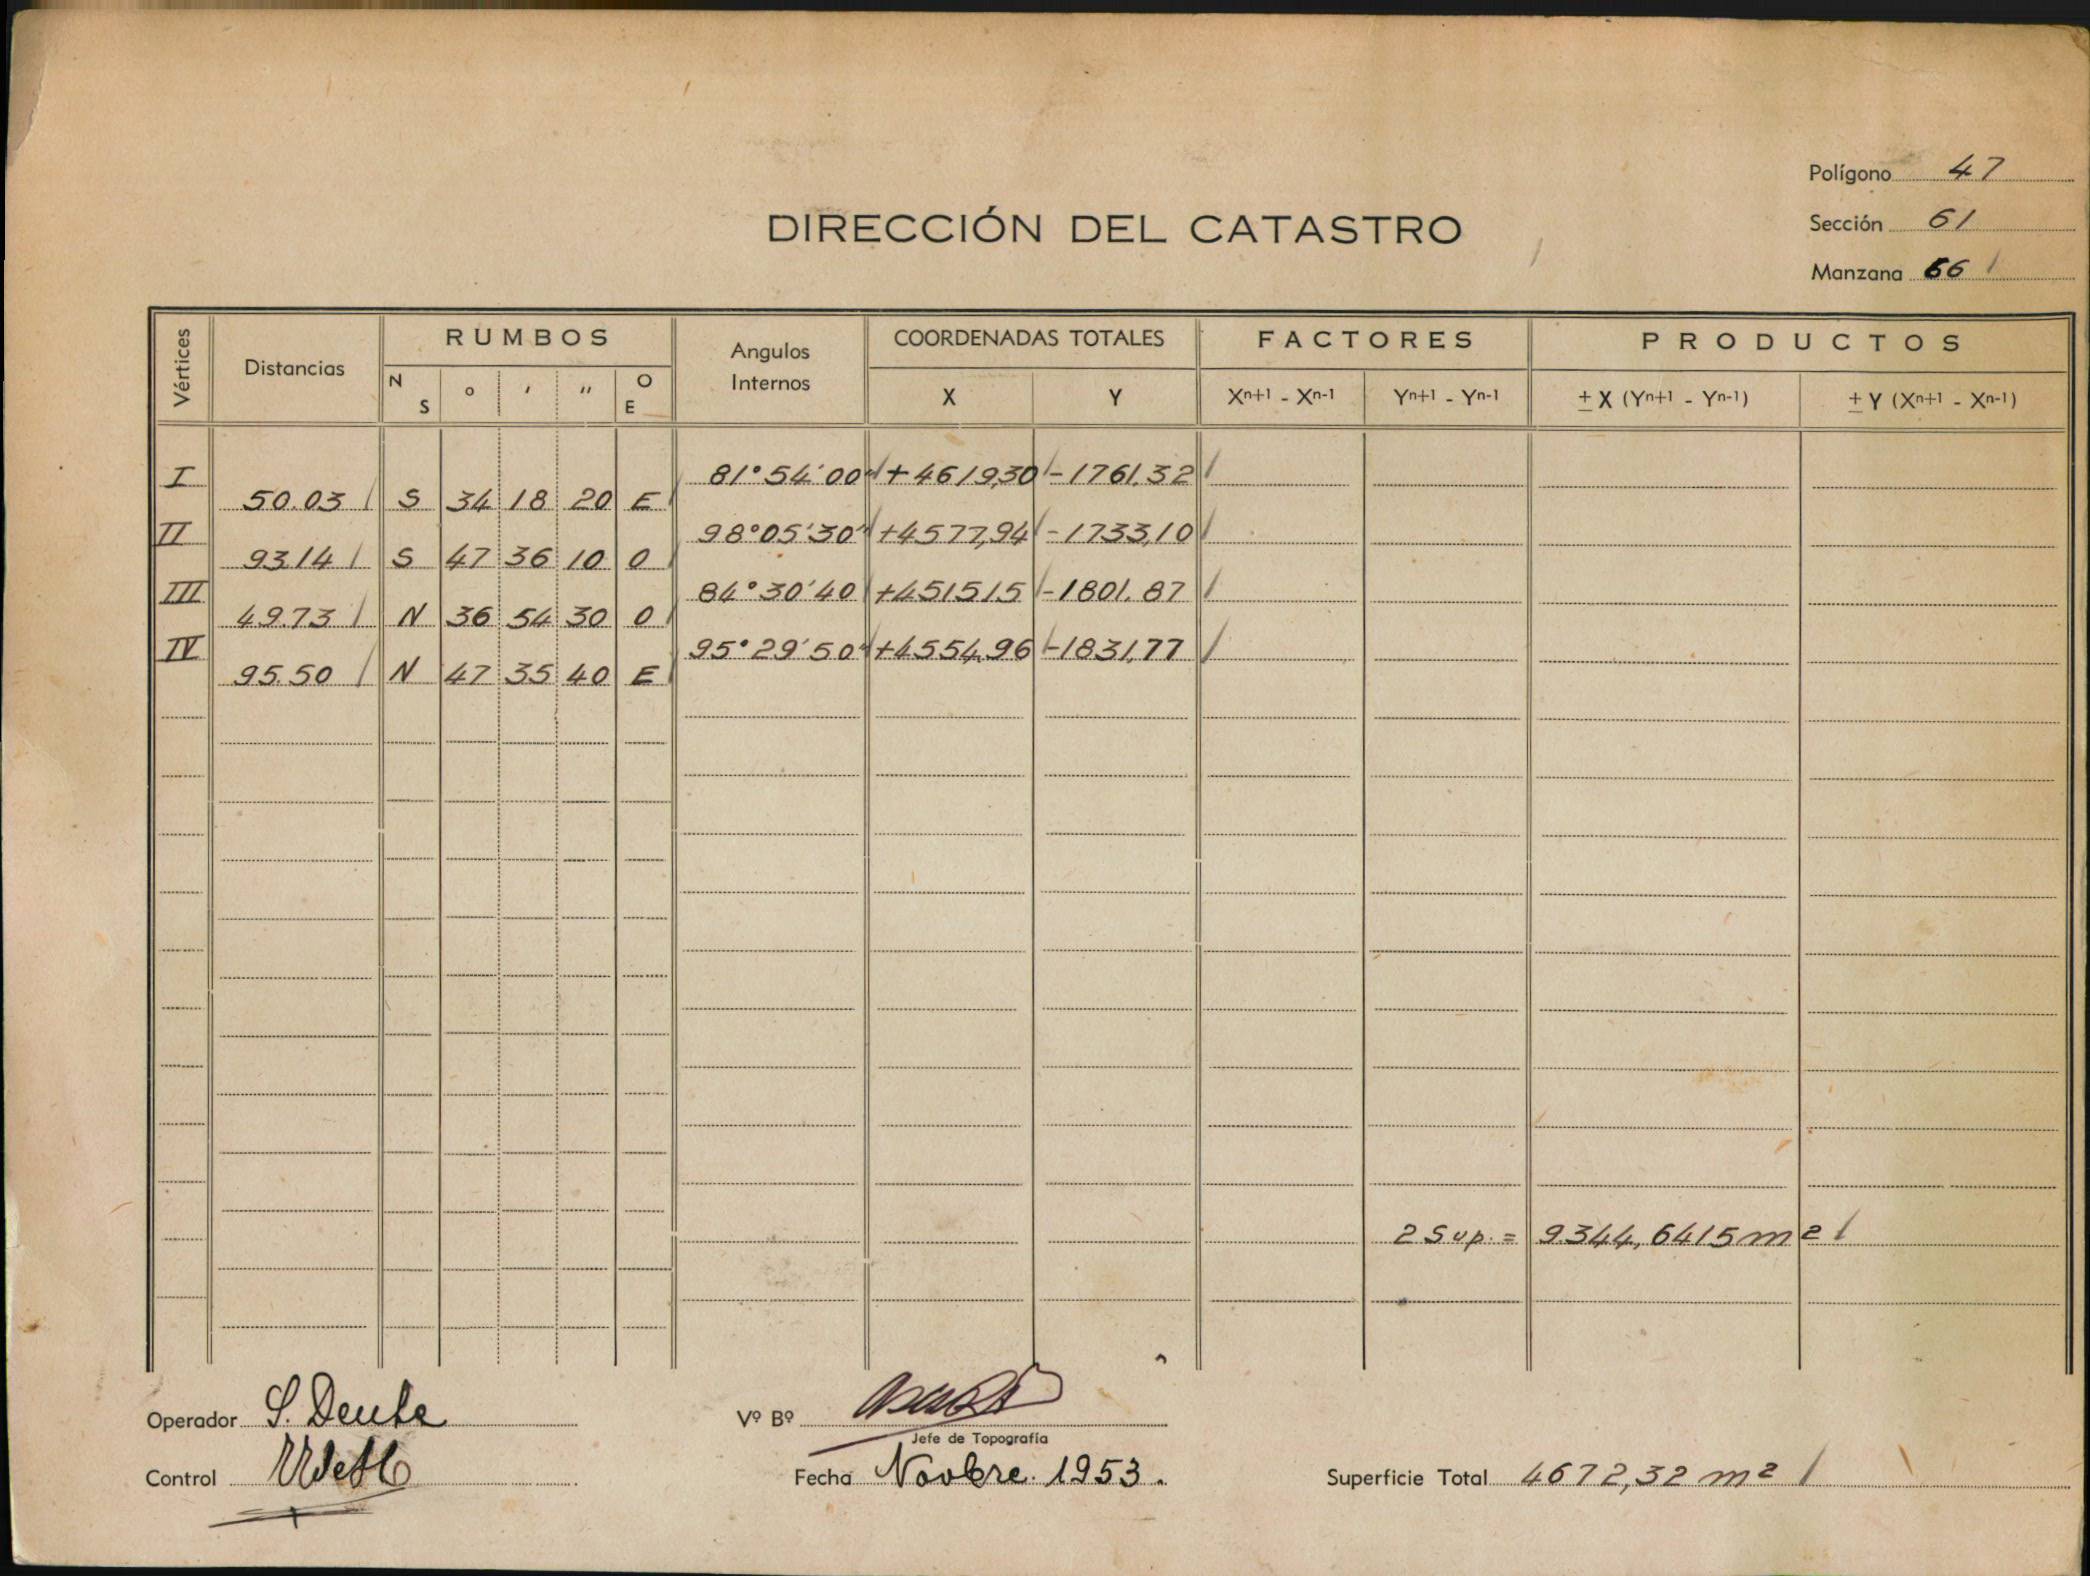 Polígono 47
DIRECCIÓN DEL CATASTRO
Sección 61
Manzana 66
Vértices Distancias RUMBOS Angulos Internos COORDENADAS TOTALES FACTORES PRODUCTOS
N S ° ' " O E X Y Xn+1 - Xn-1 Yn+1 - Yn-1 ± X (Yn+1 - Yn-1) ± Y (Xn+1 - Xn-1)
I 81°54'00" +4619,30 -1761,32
50.03 S 34 18 20 E
II 98°05'30" +4577,94 -1733,10
93.14 S 47 36 10 O
III 84°30'40 +4515,15 -1801.87
49.73 N 36 54 30 O
IV 95°29'50" +4554,96 -1831,77
95.50 N 47 35 40 E
2 Sup. = 9344,6415 m2
Operador S. Deute
Vº Bº
Jefe de Topografía
Control
Fecha Novbre. 1953.
Superficie Total 4672,32 m2